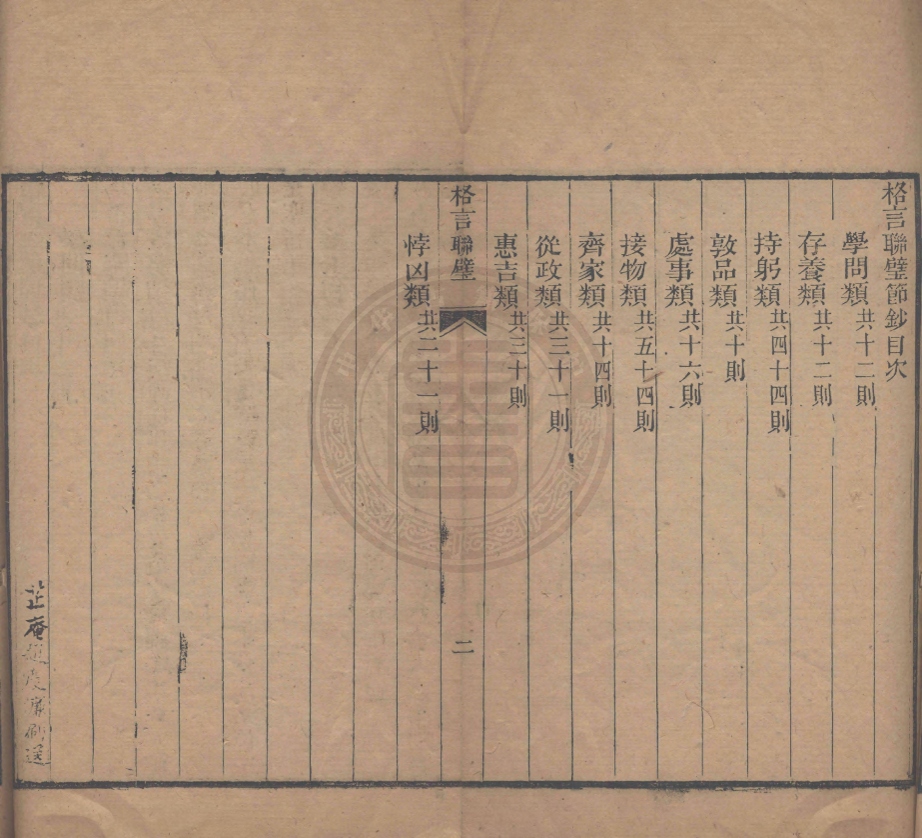 格言聯璧節鈔目次
學問類共十二則
存養類共十二則
持躬類共四十四則
敦品類共十則
處事類共十六則
接物類共五十四則
齊家類共十四則
從政類共三十一則
惠吉類共三十則
格言聯璧
二
悖凶類共二十一則
芷庵